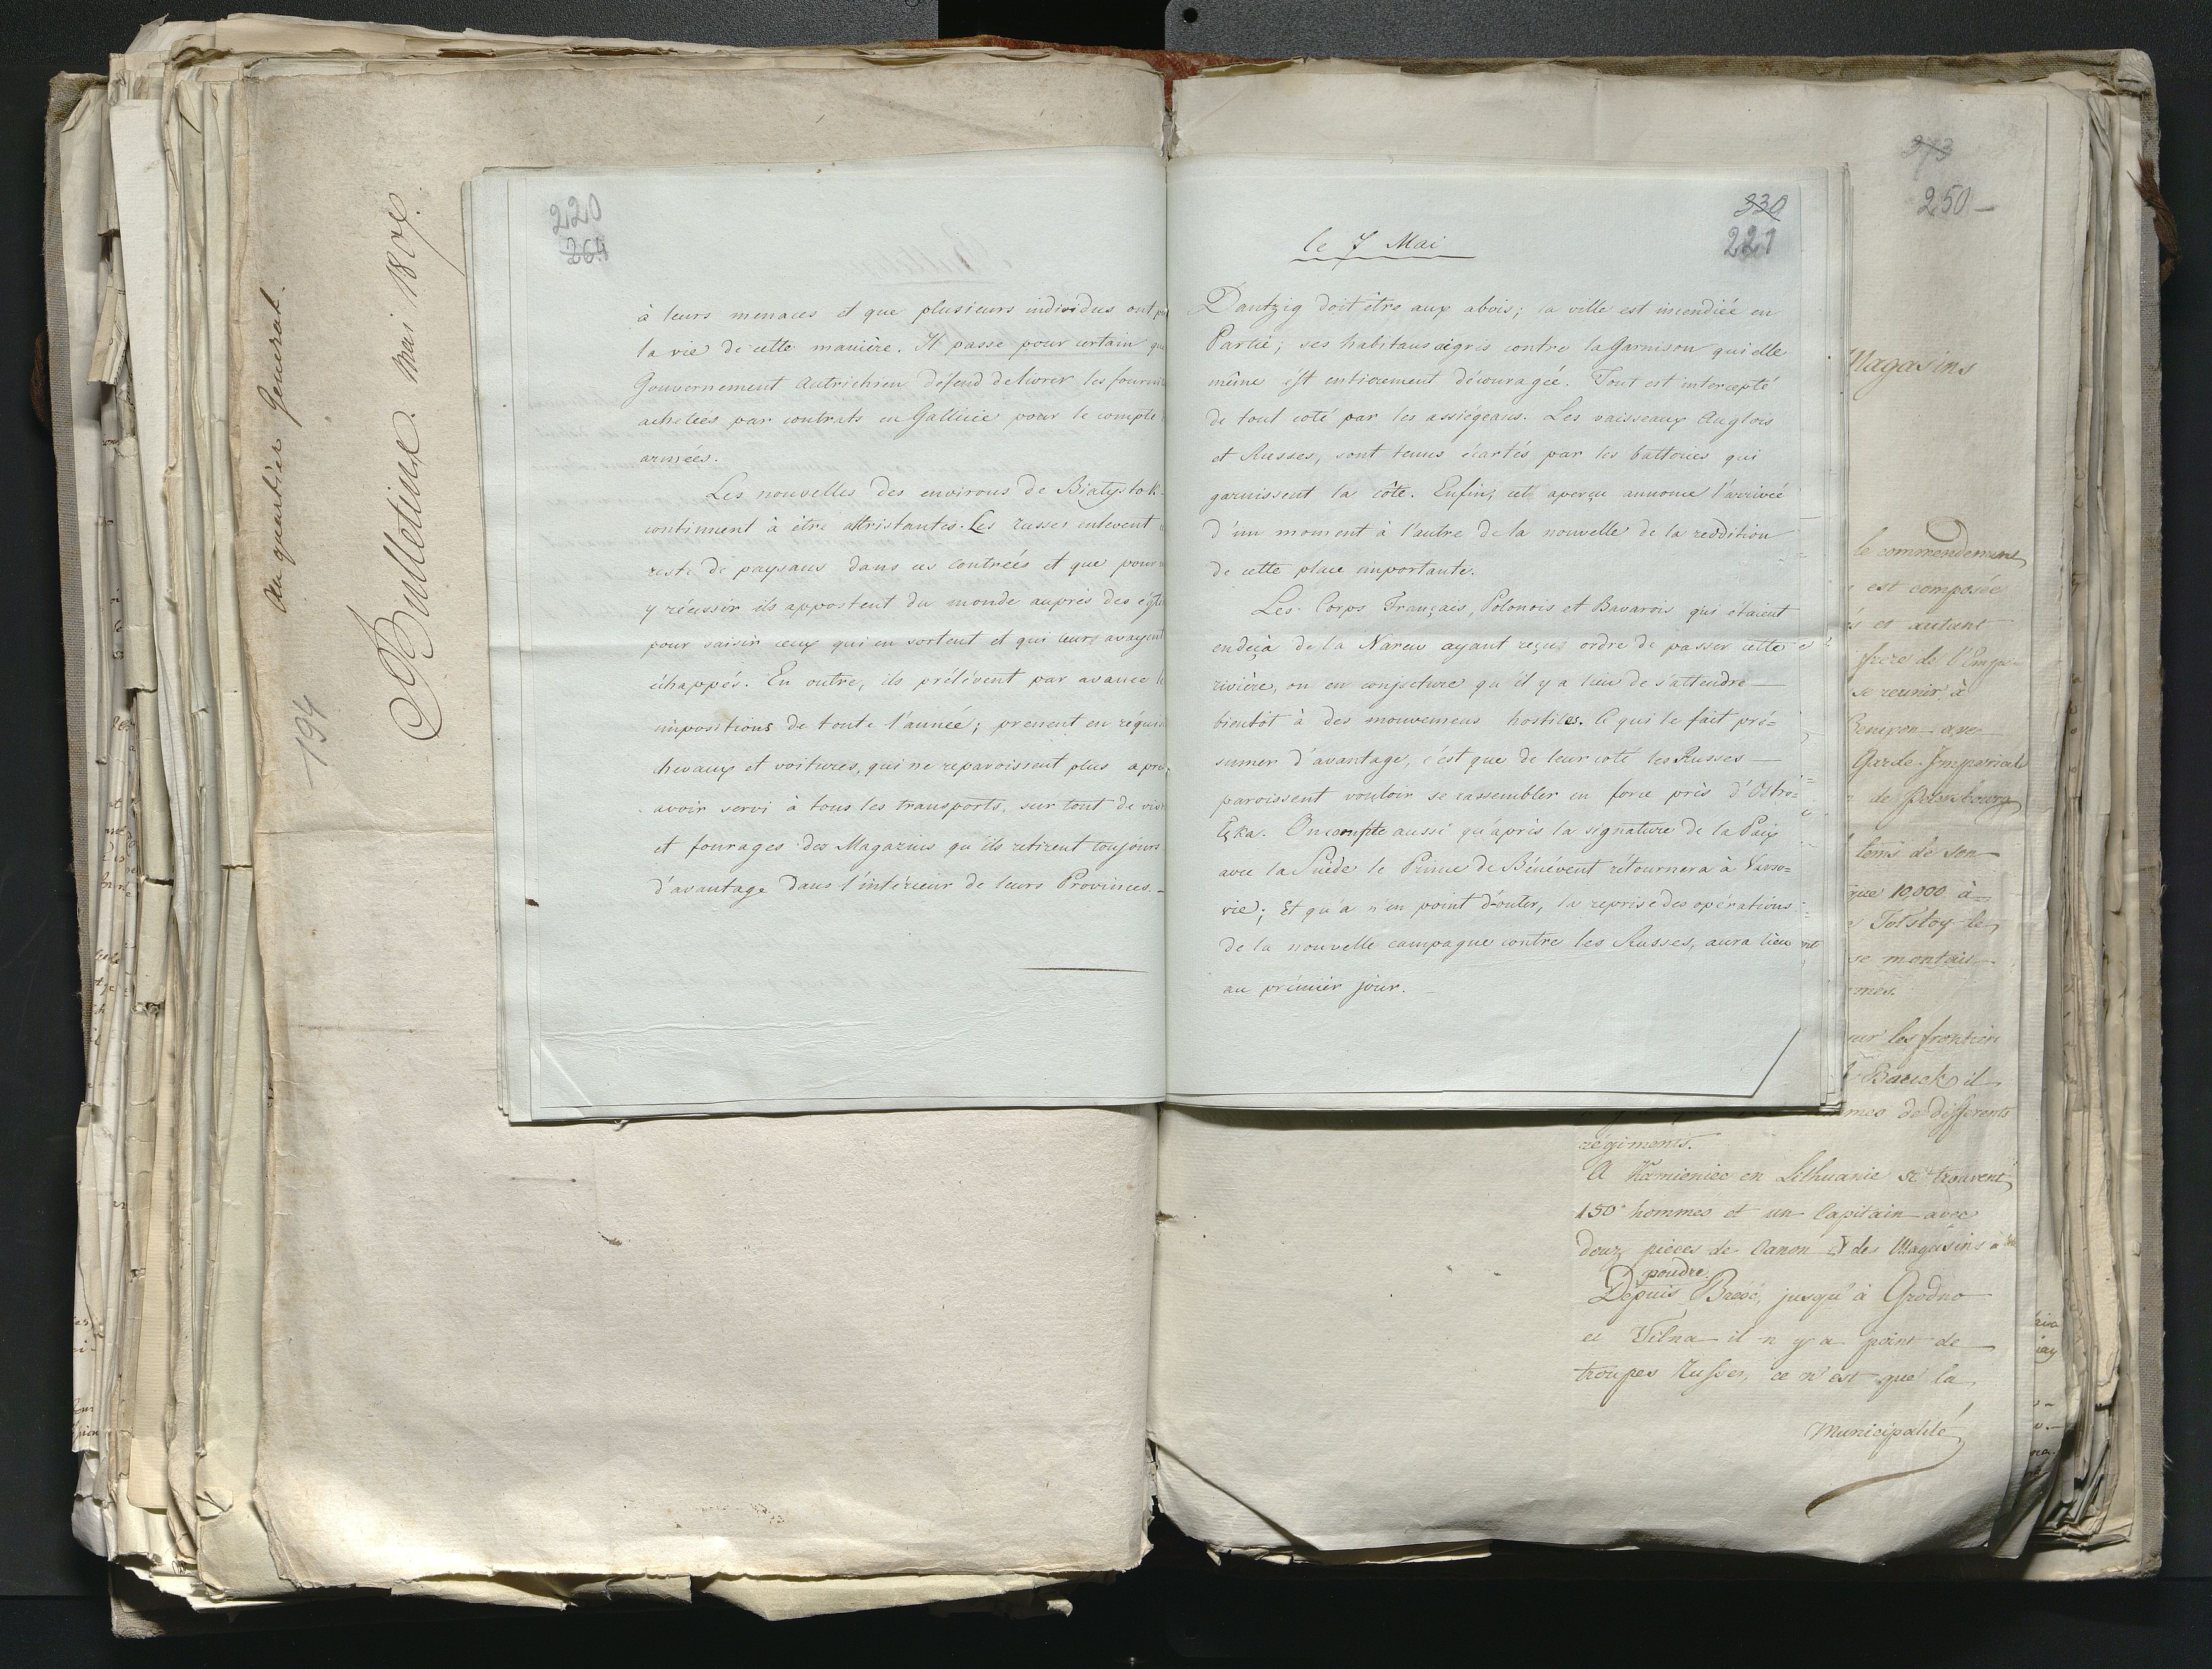 Au quartier General.
194
Bulletins. Mai 1807.
220
264
à leurs menaces et que plusieurs individus ont
la vie de cette manière. Il passe pour certain
Gouvernement Autrichien défend de livrer les
achetées par contrats en Gallicie pour le compte
armées.
Les nouvelles des environs de Białystok
continuent à être attristantes. Les russes enlevent
reste de paysans dans ces contreés et que pour
y réeussir ils appostent du monde auprès des
pour saisir ceux qui en sortent et qui leurs avayent
échappés. En outre, ils prélévent par avance
impositions de toute l'anneé; prenent en
chevaux et voitures, qui ne reparoissent plus
avoir servi à tous les transports, sur tout de
et fourages des Magazins qu'ils retirent toujours
d'avantage dans l'intérieur de leurs Provinces.
330
221
le 7 Mai
Dantzig doit être aux abois; la ville est incendiée en
Partié; ses habitans aigris contre la Garnison qui elle
même ést entiorement décourageé. Tout est intercepté
de tout coté par les assiégeans. Les vaisseaux Anglois
et Russes, sont tenus écartés par les battories qui
garnissent la côte. Enfin, cet aperçu annonce l'arriveé
d'un moment à l'autre de la nouvelle de la reddition
de cette place importante.
Les Corps Français, Polonois et Bavarois qui etaient
endeçà de la Narew ayant reçus ordre de passer cette
rivière, on en conjecture qu'il y a lieu de s'attendre
bientôt à des mouvemens hostiles. Ce qui le fait pré=
sumer d'avantage, c'est que de leur coté les Russes
paroissent vouloir se rassembler en force près d'Ostro=
łęka. On compte aussi qu'après la signature de la Paix
avec la Suède le Prince de Bénévent retournera à Varso=
vie; Et qu'a n'en point d'outer, la reprise des opérations
de la nouvelle campagne contre les Russes, aura lieu
au prémiér jour.
273
250
Magasins
le commendement
est composée
es autant
frere de l'Empe
se reunir à
avec
Garde Imperiale
de Petersbourg
tems de son
que 10,000 à
Tolstoy le
se montait
mes.
sur les frontieri
il
mes de differents
regiments.
A Kamieniec en Lithuanie se trouvent
150 hommes et un Capitain avec
douz pieces de Canon & des Magasins à
poudre.
Depuis Bresc, jusqu'à Grodno
et Vilna il n y a point de
troupes Russes, ce n'est que la
Municipalité